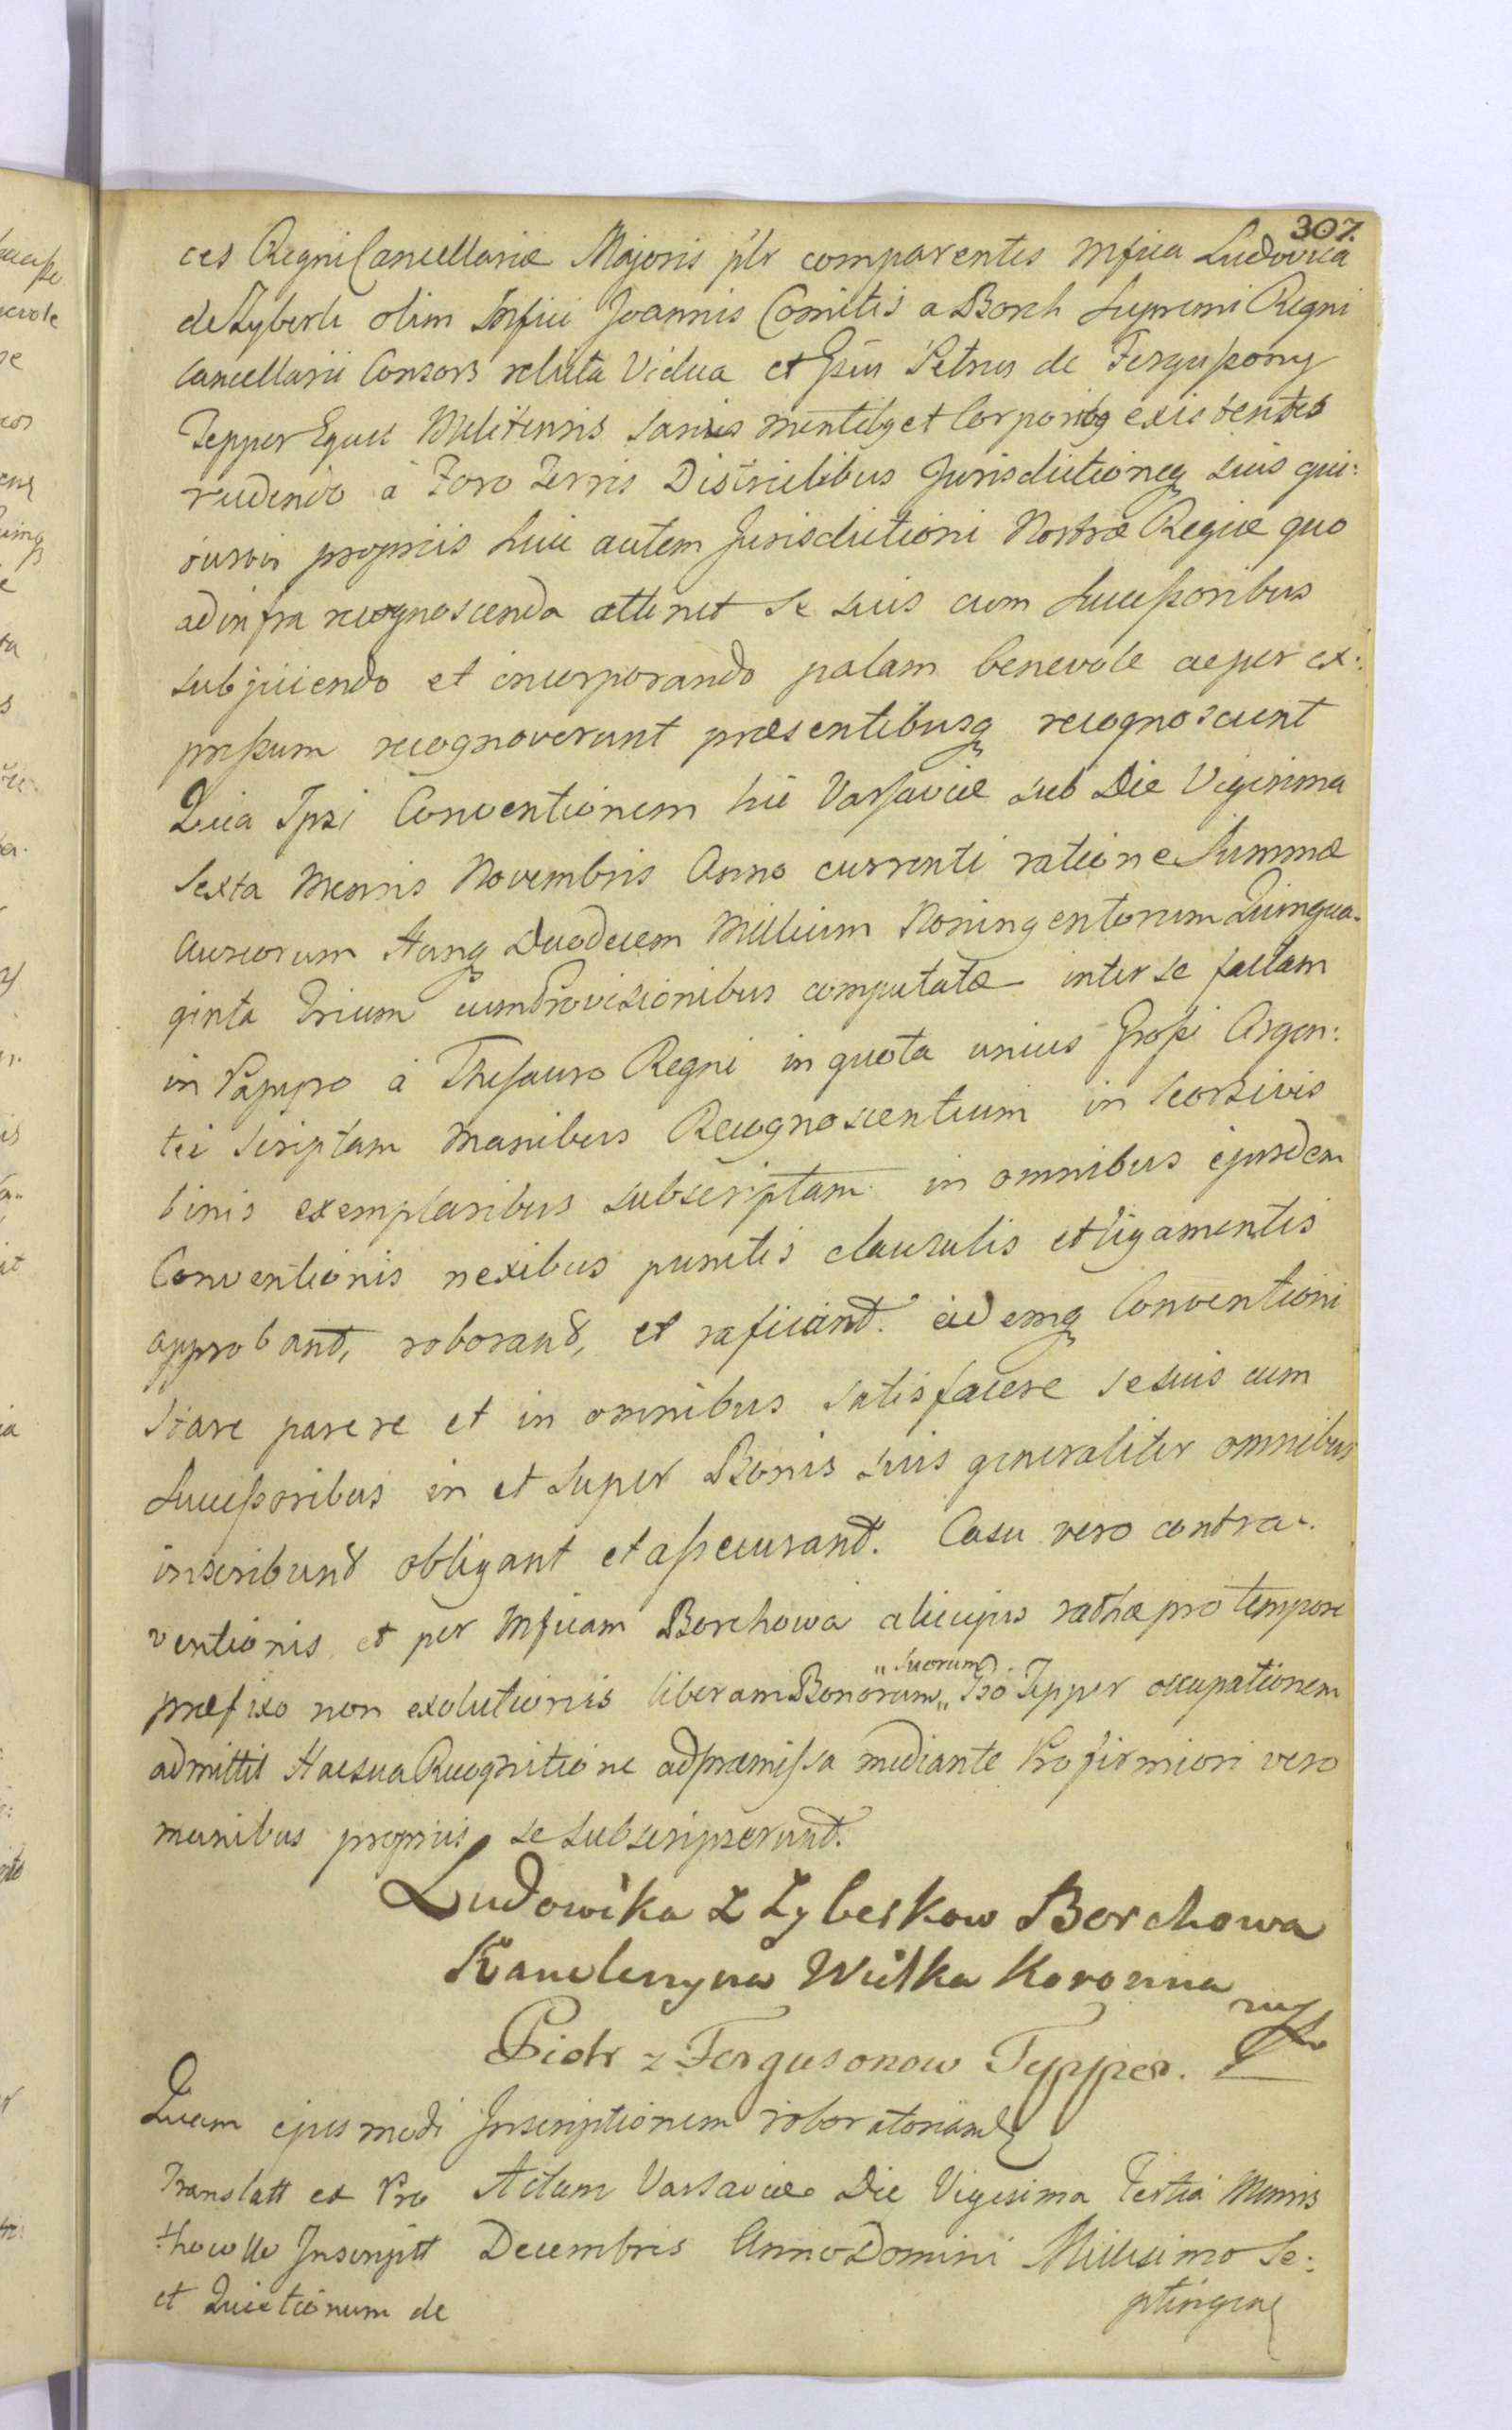 307.
ces Regni Cancellariæ Majoris pltr comparentes Mfica Ludovica
de Zyberk olim Mfici Joannis Comitis a Borch Supremi Regni
Cancellarii Consors relicta Vidua et Gsus Petrus de Fergussony
Tepper Eques Melitensis sanis mentibq et Corporibq existentes
recedendo a Foro Terris Districtibus Jurisdictioneq suis qui:
busvis propriis huic autem Jurisdictioni Nostræ Regiæ quo
ad infra recognoscenda attinet se suis cum Successoribus
subjiciendo et incorporando palam benevole ac per ex:
pressum recognoverunt præsentibusq recognoscunt
Quia Ipsi Conventionem hic Varsaviæ sub Die Vigesima
Sexta Mensis Novembris Anno currenti ratione Summæ
Aureorum Hung Duodecem Millium Noningentorum Quinqua-
ginta Trium cum Provisionibus computatæ inter se factam
in Papyro a Thesauro Regni in quota unius Grossi Argen:
tei scriptam Manibus Recognoscentium in seorsivis
binis exemplaribus subscriptam in omnibus ejusdem
Conventionis nexibus punctis clausulis et ligamentis
approbant, roborant, et raficant. eidemq Conventioni
stare parere et in omnibus satisfacere se suis cum
Successoribus in et super Bonis suis generaliter omnibus
inscribunt obligant et assecurant. Casu vero contra-
ventionis et per Mficam Borchowa alicujus rathæ pro tempore
præfixo non exolutionis liberam Bonorum „ suorum „ Gso Tepper occupationem
admittit Hac sua Recognitione ad præmissa mediante Pro firmiori vero
manibus propriis se subscripserunt.
Ludowika z Zyberkow Borchowa
Kanclerzyna Wielka Koronna
Piotr z Fergusonow Tepper. mp
Quam ejusmodi Inscriptionem roboratoriam
Translatt et Pro Actum Varsaviæ Die Vigesima Tertia Mensis
Inscriptt Decembris Anno Domini Millesimo Se:
et Quietationum de ptingen